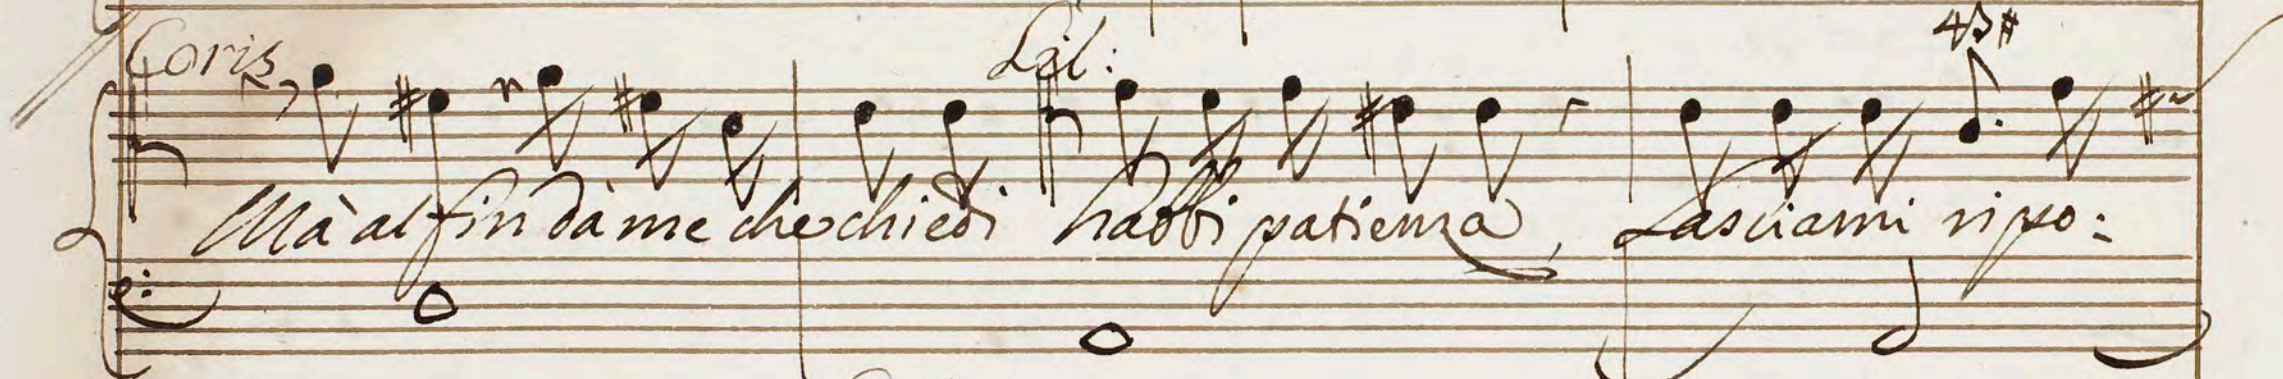 Coris Lil: 43#
Mà al fin dà me che chiedi habbi patienza, Lasciami ripo: